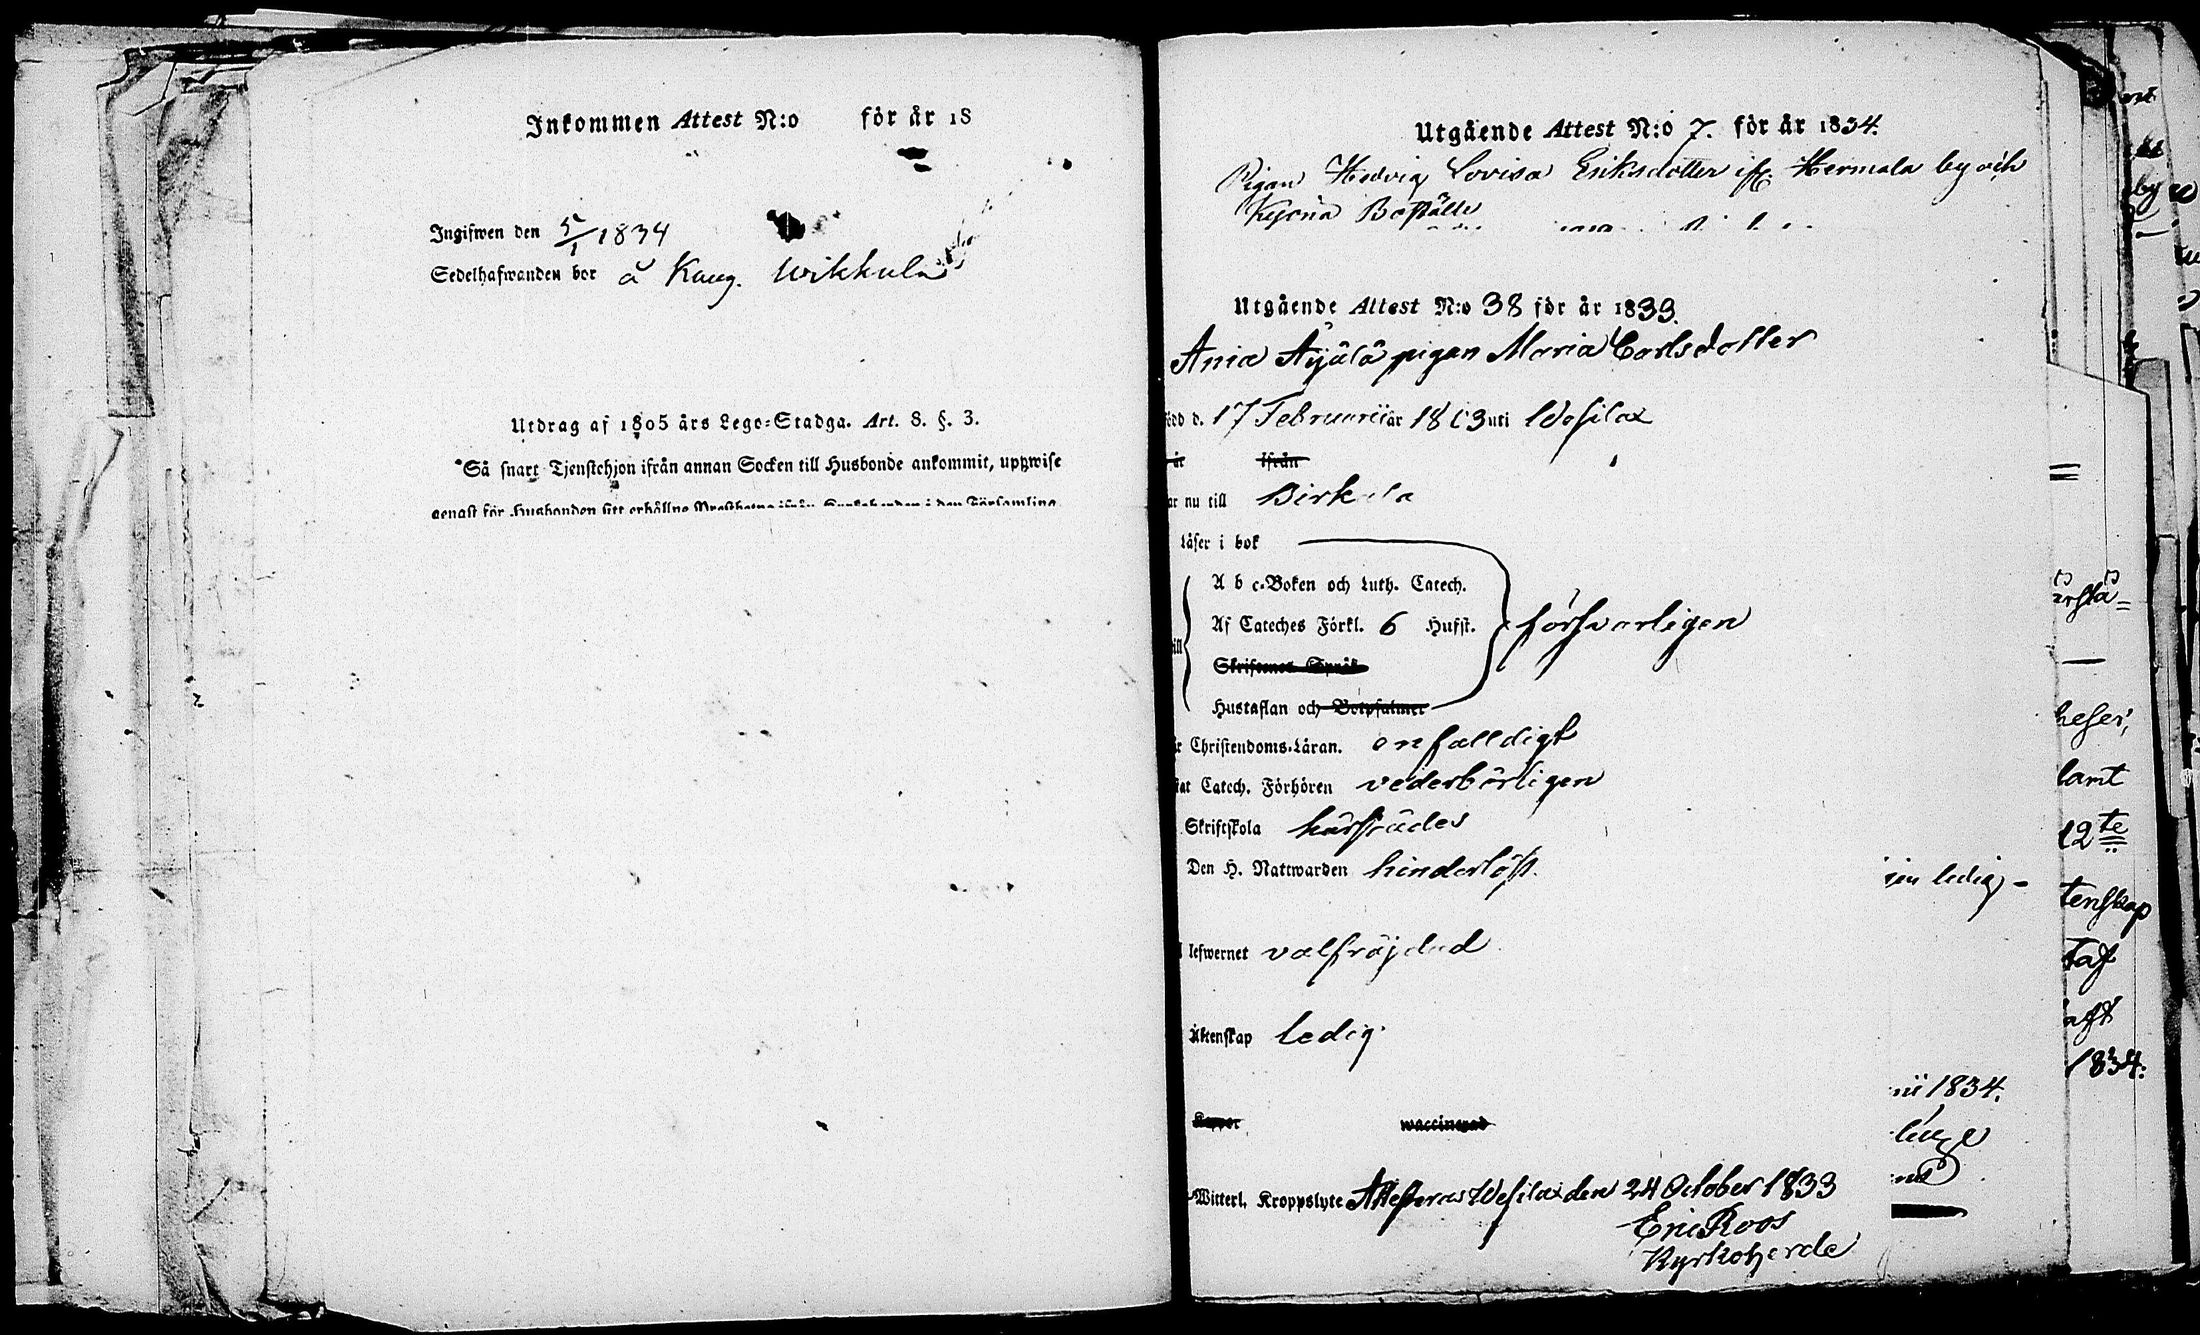 Inkommen Attest N:o för år 18
Ingifwen den 5/1 1834
Sedelhafwanden bor å Kaug. Wikkula
Utdrag af 1805 års Lego-Stadga. Art. 8. §. 3.
"Så snart Tjenstehjon ifrån annan Socken till Husbonde ankommit, uppwise
genast för Husbonden sitt erhållne Prestbetyg ifrån Kyrkoherden i den Församling
Utgående Attest N:o 7. för år 1834.
Pigan Hedvig Lovisa Eriksdotter ifr. Hermala by och
Kyrria Boställe
Utgående Attest N:o 38 för år 1833.
Ania Äijälä pigan Maria Carlsdotter
född d. 17 Februarii år 1813 uti Wesilax
år ifrån
ar nu till Birkala
Läser i bok
A b c-Boken och Luth. Catech.
Af Cateches Förkl. 6 Hufst. försvarligen
Skriftenes Språk
Hustaflan och Botpsalmer
r Christendoms-Läran. enfalldigt
kat Catech. Förhören vederbörligen
Skriftskola härstädes
Den H. Nattwarden hinderlöst.
lefwernet välfräjdad
Äktenskap ledig.
jen ledig -
Koppor waccinerad
Witterl. Kroppslyte Attesteras Wesilax den 24 October 1833
Eric Roos
Kyrkoherde
nii 1834.
by
arstå=
heser,
lamt
12te
tenskap
taf
aft
1834: